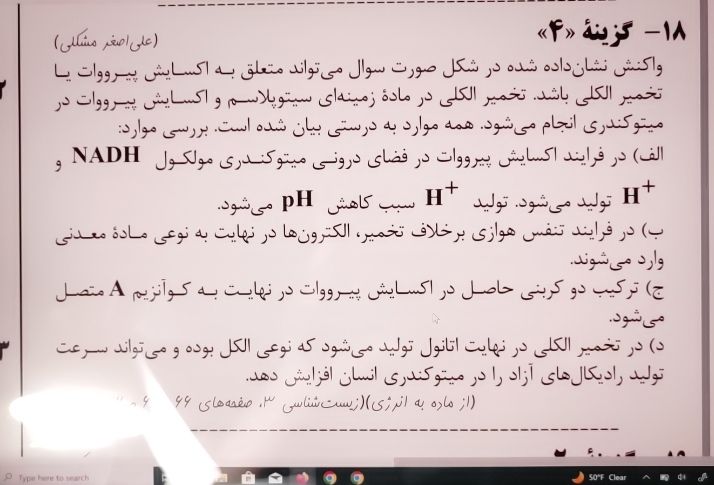 ۱۸- گزینهٔ «۴»
(علی‌اصغر مشکلی)
واکنش نشان‌داده شده در شکل صورت سوال می‌تواند متعلق به اکسایش پیرووات یا
تخمیر الکلی باشد. تخمیر الکلی در مادهٔ زمینه‌ای سیتوپلاسم و اکسایش پیرووات در
میتوکندری انجام می‌شود. همه موارد به درستی بیان شده است. بررسی موارد:
الف) در فرایند اکسایش پیرووات در فضای درونی میتوکندری مولکول NADH و
H+ تولید می‌شود. تولید H+ سبب کاهش pH می‌شود.
ب) در فرایند تنفس هوازی برخلاف تخمیر، الکترون‌ها در نهایت به نوعی مادهٔ معدنی
وارد می‌شوند.
ج) ترکیب دو کربنی حاصل در اکسایش پیرووات در نهایت به کوآنزیم A متصل
می‌شود.
د) در تخمیر الکلی در نهایت اتانول تولید می‌شود که نوعی الکل بوده و می‌تواند سرعت
تولید رادیکال‌های آزاد را در میتوکندری انسان افزایش دهد.
(از ماده به انرژی) (زیست‌شناسی ۳، صفحه‌های ۶۶
Type here to search
50°F Clear